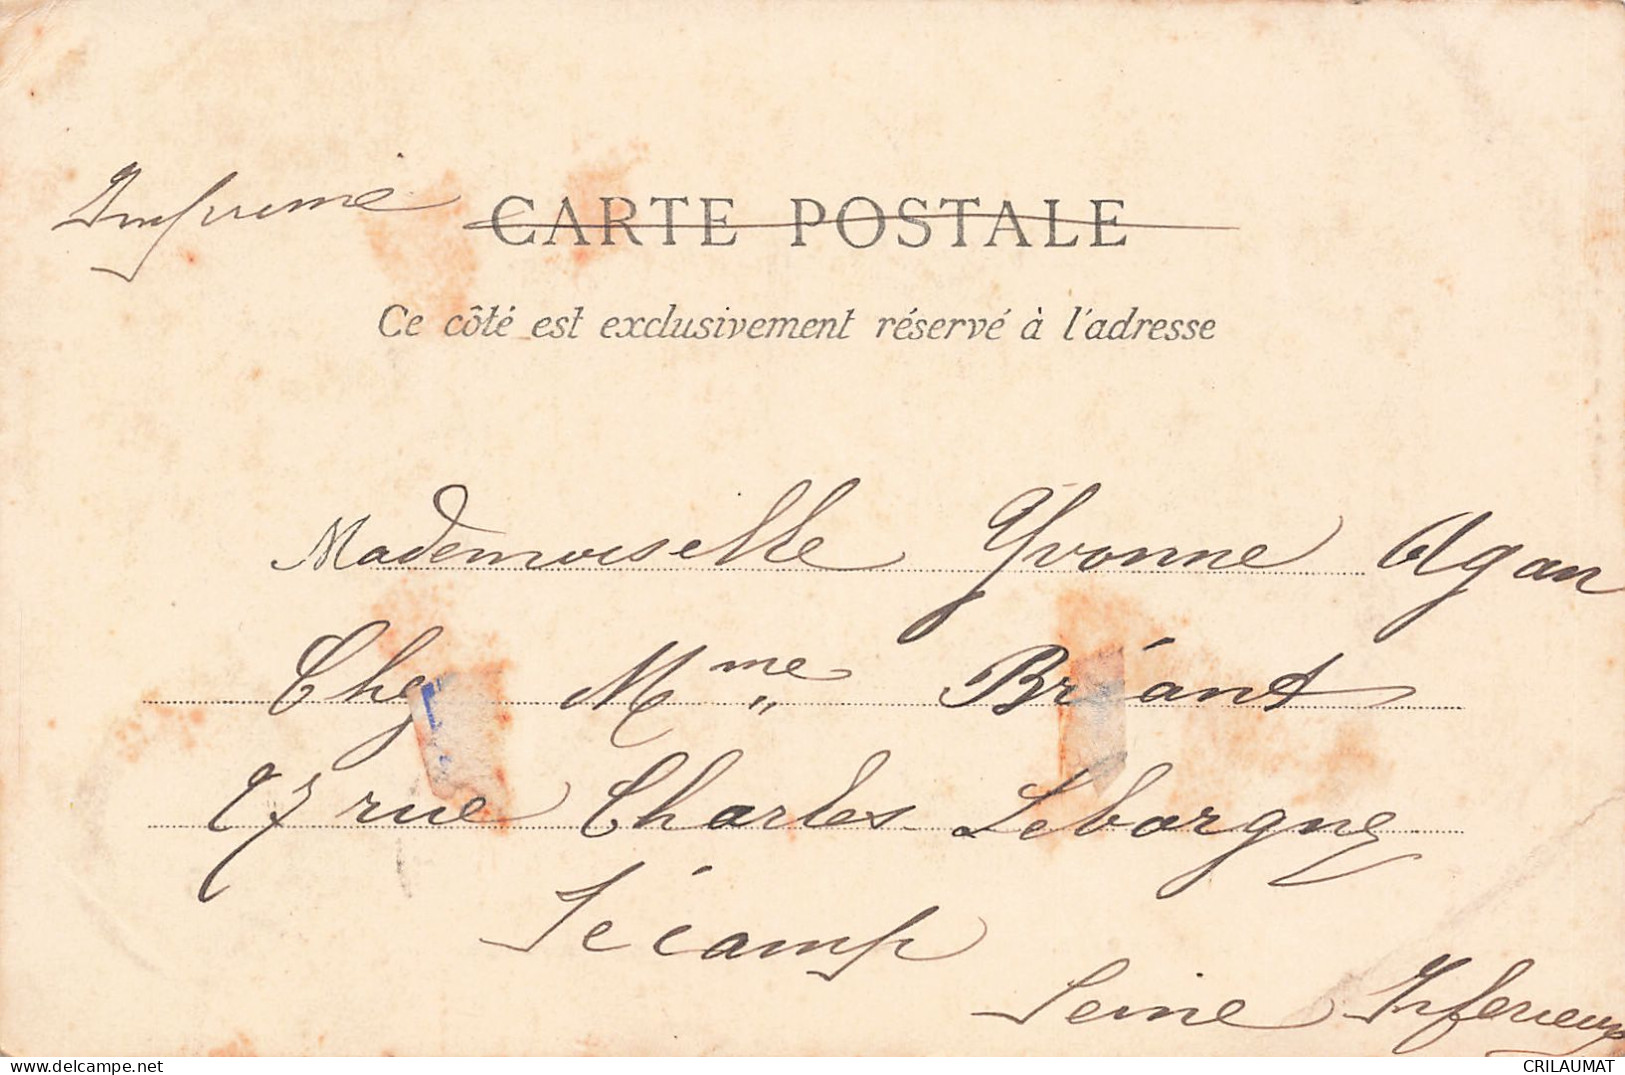 Imprimé
CARTE POSTALE
Ce côté est exclusivement réservé à l'adresse
Mademoiselle Yvonne Agan
Chez Mme Briant
27 rue Charles Leborgne
Fécamp
Seine Inferieure
www.delcampe.net
CRILAUMAT